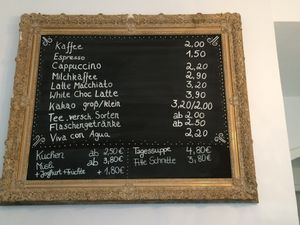 Kaffee 2,00
Espresso 1,50
Cappuccino 2,20
Milchkaffee 2,90
Latte Macchiato 3,20
White Choc Latte 3,90
Kakao groß/klein 3,20/2,00
Tee, versch. Sorten ab 2,00
Flaschengetränke ab 2,50
Viva con Agua 2,20
Kuchen ab 2,50€
Müsli ab 3,80€
+ Joghurt + Früchte + 1,80€
Tagessuppe 4,80€
Fitte Schnitte 3,80€